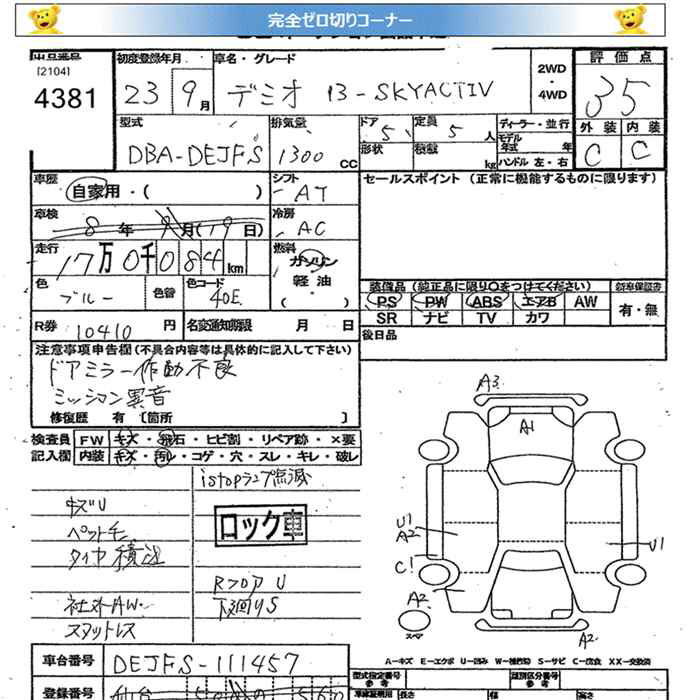 完全ゼロ切りコーナー
出品番号
[2104]
4381
初度登録年月
23年9月
車名・グレード
デミオ 13-SKYACTIV
2WD
・
4WD
評価点
3.5
外装 内装
C C
型式
DBA-DEJFS
排気量
1300 CC
ドア
5
形状
定員
5人
積載
kg
ディーラー・並行
モデル年式 年
ハンドル 左・右
車歴
自家用・( )
シフト
AT
セールスポイント (正常に機能するものに限ります)
車検
8年9月(19日)
冷房
AC
走行
17万0千084km
燃料
ガソリン
軽油
( )
色
ブルー
色替
色コード
40E
装備品 (純正品に限り○をつけてください)
PS PW ABS エアB AW
SR ナビ TV カワ
新車保証書
有・無
R券 10410円
名変通知期限 月 日
後日品
注意事項申告欄 (不具合内容等は具体的に記入して下さい)
ドアミラー作動不良
ミッション異音
修復歴 有 [箇所 ]
検査員 FW キズ・飛石・ヒビ割・リペア跡・×要
記入欄 内装 キズ・汚レ・コゲ・穴・スレ・キレ・破レ
istopランプ点滅
キズU
ペット毛
ロック車
タイヤ積込
RフロアU
社外AW
下回りS
スタットレス
A3
A1
U1
A2
U1
C1
A2
スペア
A2
A-キズ E-エクボ U-凹み W-補修跡 S-サビ C-腐食 XX-交換済
車台番号 DEJFS-111457
型式指定番号
類別区分番号
参考
参考
登録番号 仙台 50
車検証明用 長さ 幅 高さ